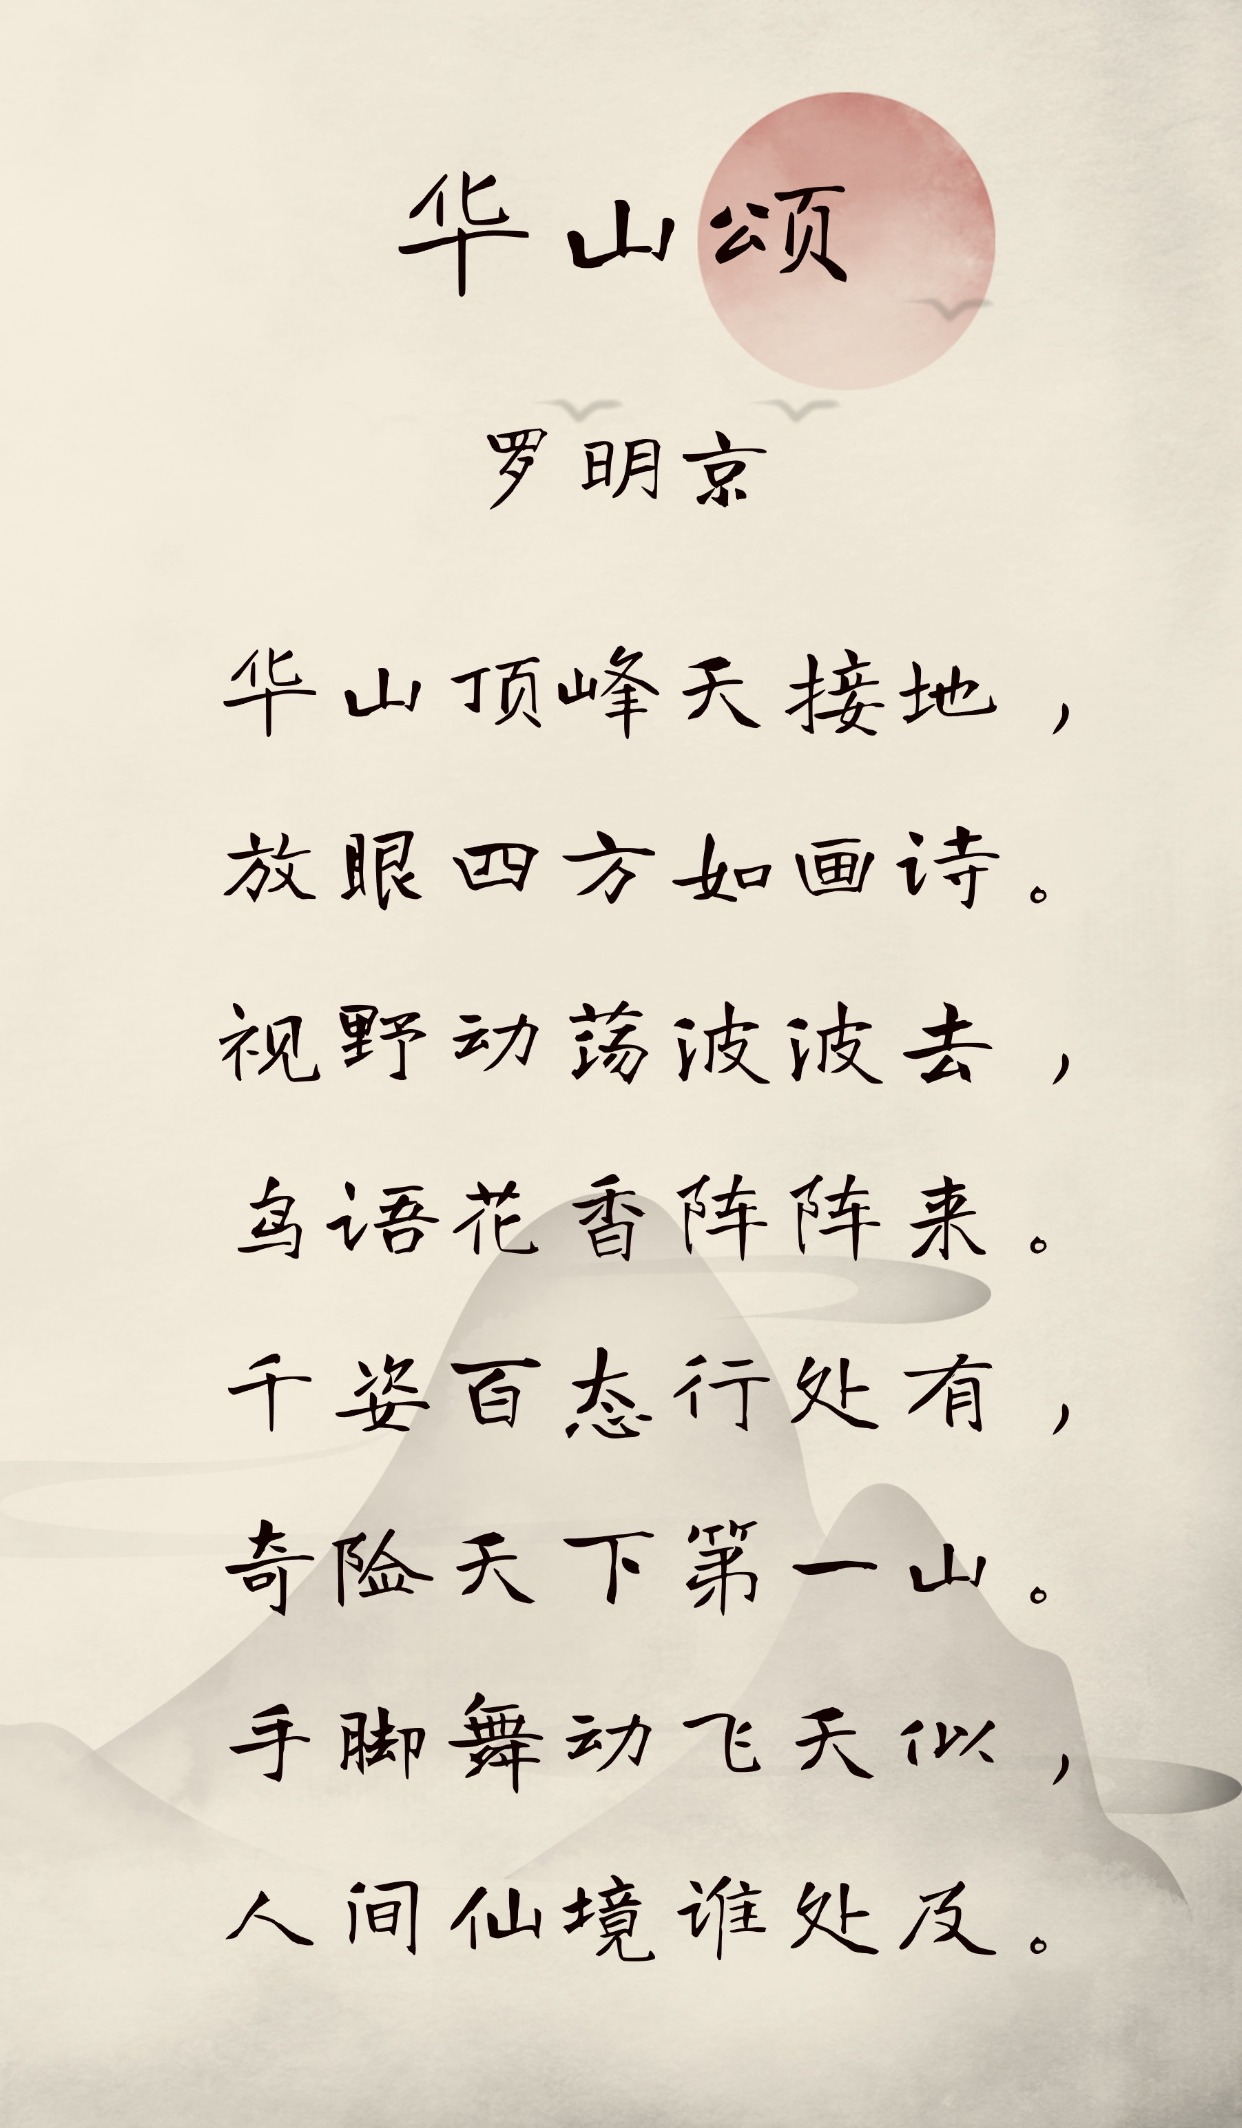 华山颂
罗明京
华山顶峰天接地，
放眼四方如画诗。
视野动荡波波去，
鸟语花香阵阵来。
千姿百态行处有，
奇险天下第一山。
手脚舞动飞天似，
人间仙境谁处及。